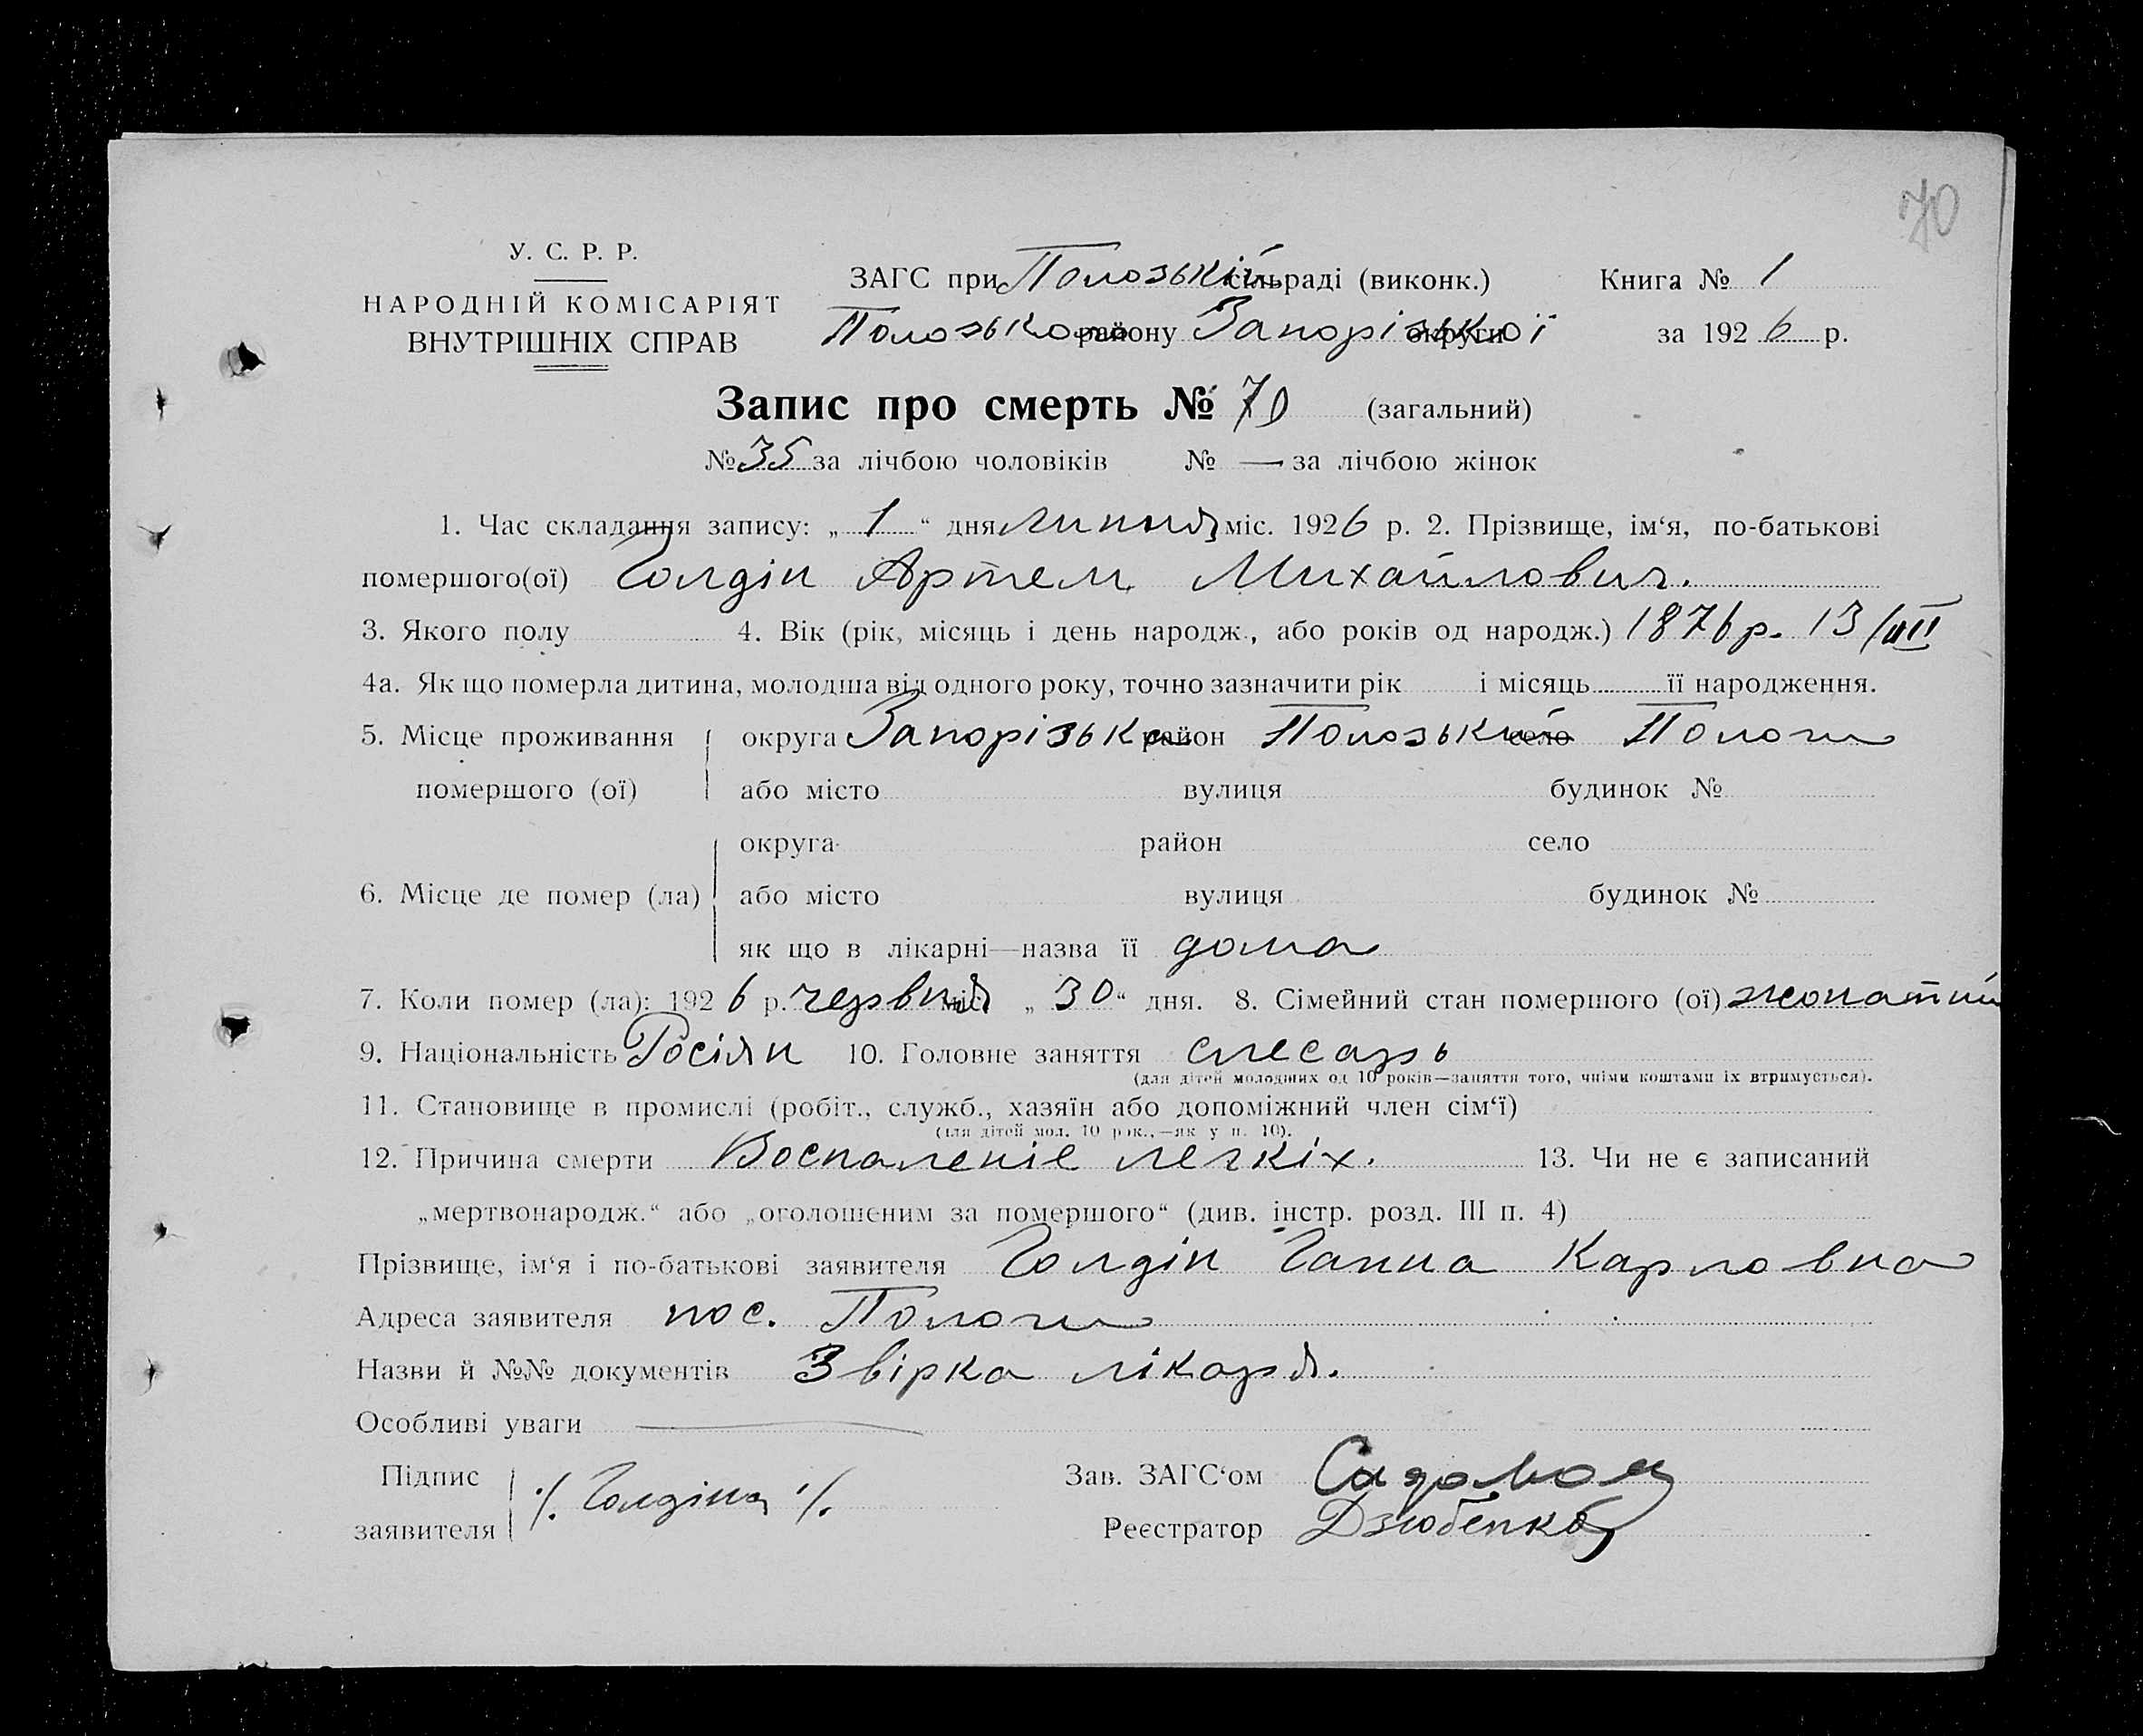 70
У. С. Р. Р.
НАРОДНІЙ КОМІСАРІЯТ
ВНУТРІШНІХ СПРАВ
ЗАГС при Пологській сільраді (виконк.) Книга № 1
Пологського району Запорізької округи за 1926 р.
Запис про смерть № 70 (загальний)
№ 35 за лічбою чоловіків № — за лічбою жінок
1. Час складання запису: „1“ дня липня міс. 1926 р. 2. Прізвище, ім‘я, по-батькові
помершого(ої) Голдін Артем Михайлович.
3. Якого полу 4. Вік (рік, місяць і день народж., або років од народж.) 1876 р. 13/III
4а. Як що померла дитина, молодша від одного року, точно зазначити рік і місяць її народження.
5. Місце проживання округа Запорізька район Пологський село Пологи
помершого (ої) або місто вулиця будинок №
округа район село
6. Місце де помер (ла) або місто вулиця будинок №
як що в лікарні—назва її дома
7. Коли помер (ла): 1926 р. червня міс. „30“ дня. 8. Сімейний стан помершого (ої) жонатий
9. Національність Росіян 10. Головне заняття слесарь
(для дітей молодших од 10 років—заняття того, чиїми коштами їх втримується).
11. Становище в промислі (робіт., служб., хазяїн або допоміжний член сім‘ї)
(для дітей мол. 10 рок.,—як у п. 10).
12. Причина смерти Воспаленіе легкіх. 13. Чи не є записаний
„мертвонародж.“ або „оголошеним за помершого“ (див. інстр. розд. III п. 4)
Прізвище, ім‘я і по-батькові заявителя Голдін Ганна Карловна
Адреса заявителя пос. Пологи
Назви й №№ документів Звірка лікаря.
Особливі уваги —
Підпис
заявителя ./. Голдіна ./.
Зав. ЗАГС‘ом
Реєстратор Дзюбенко